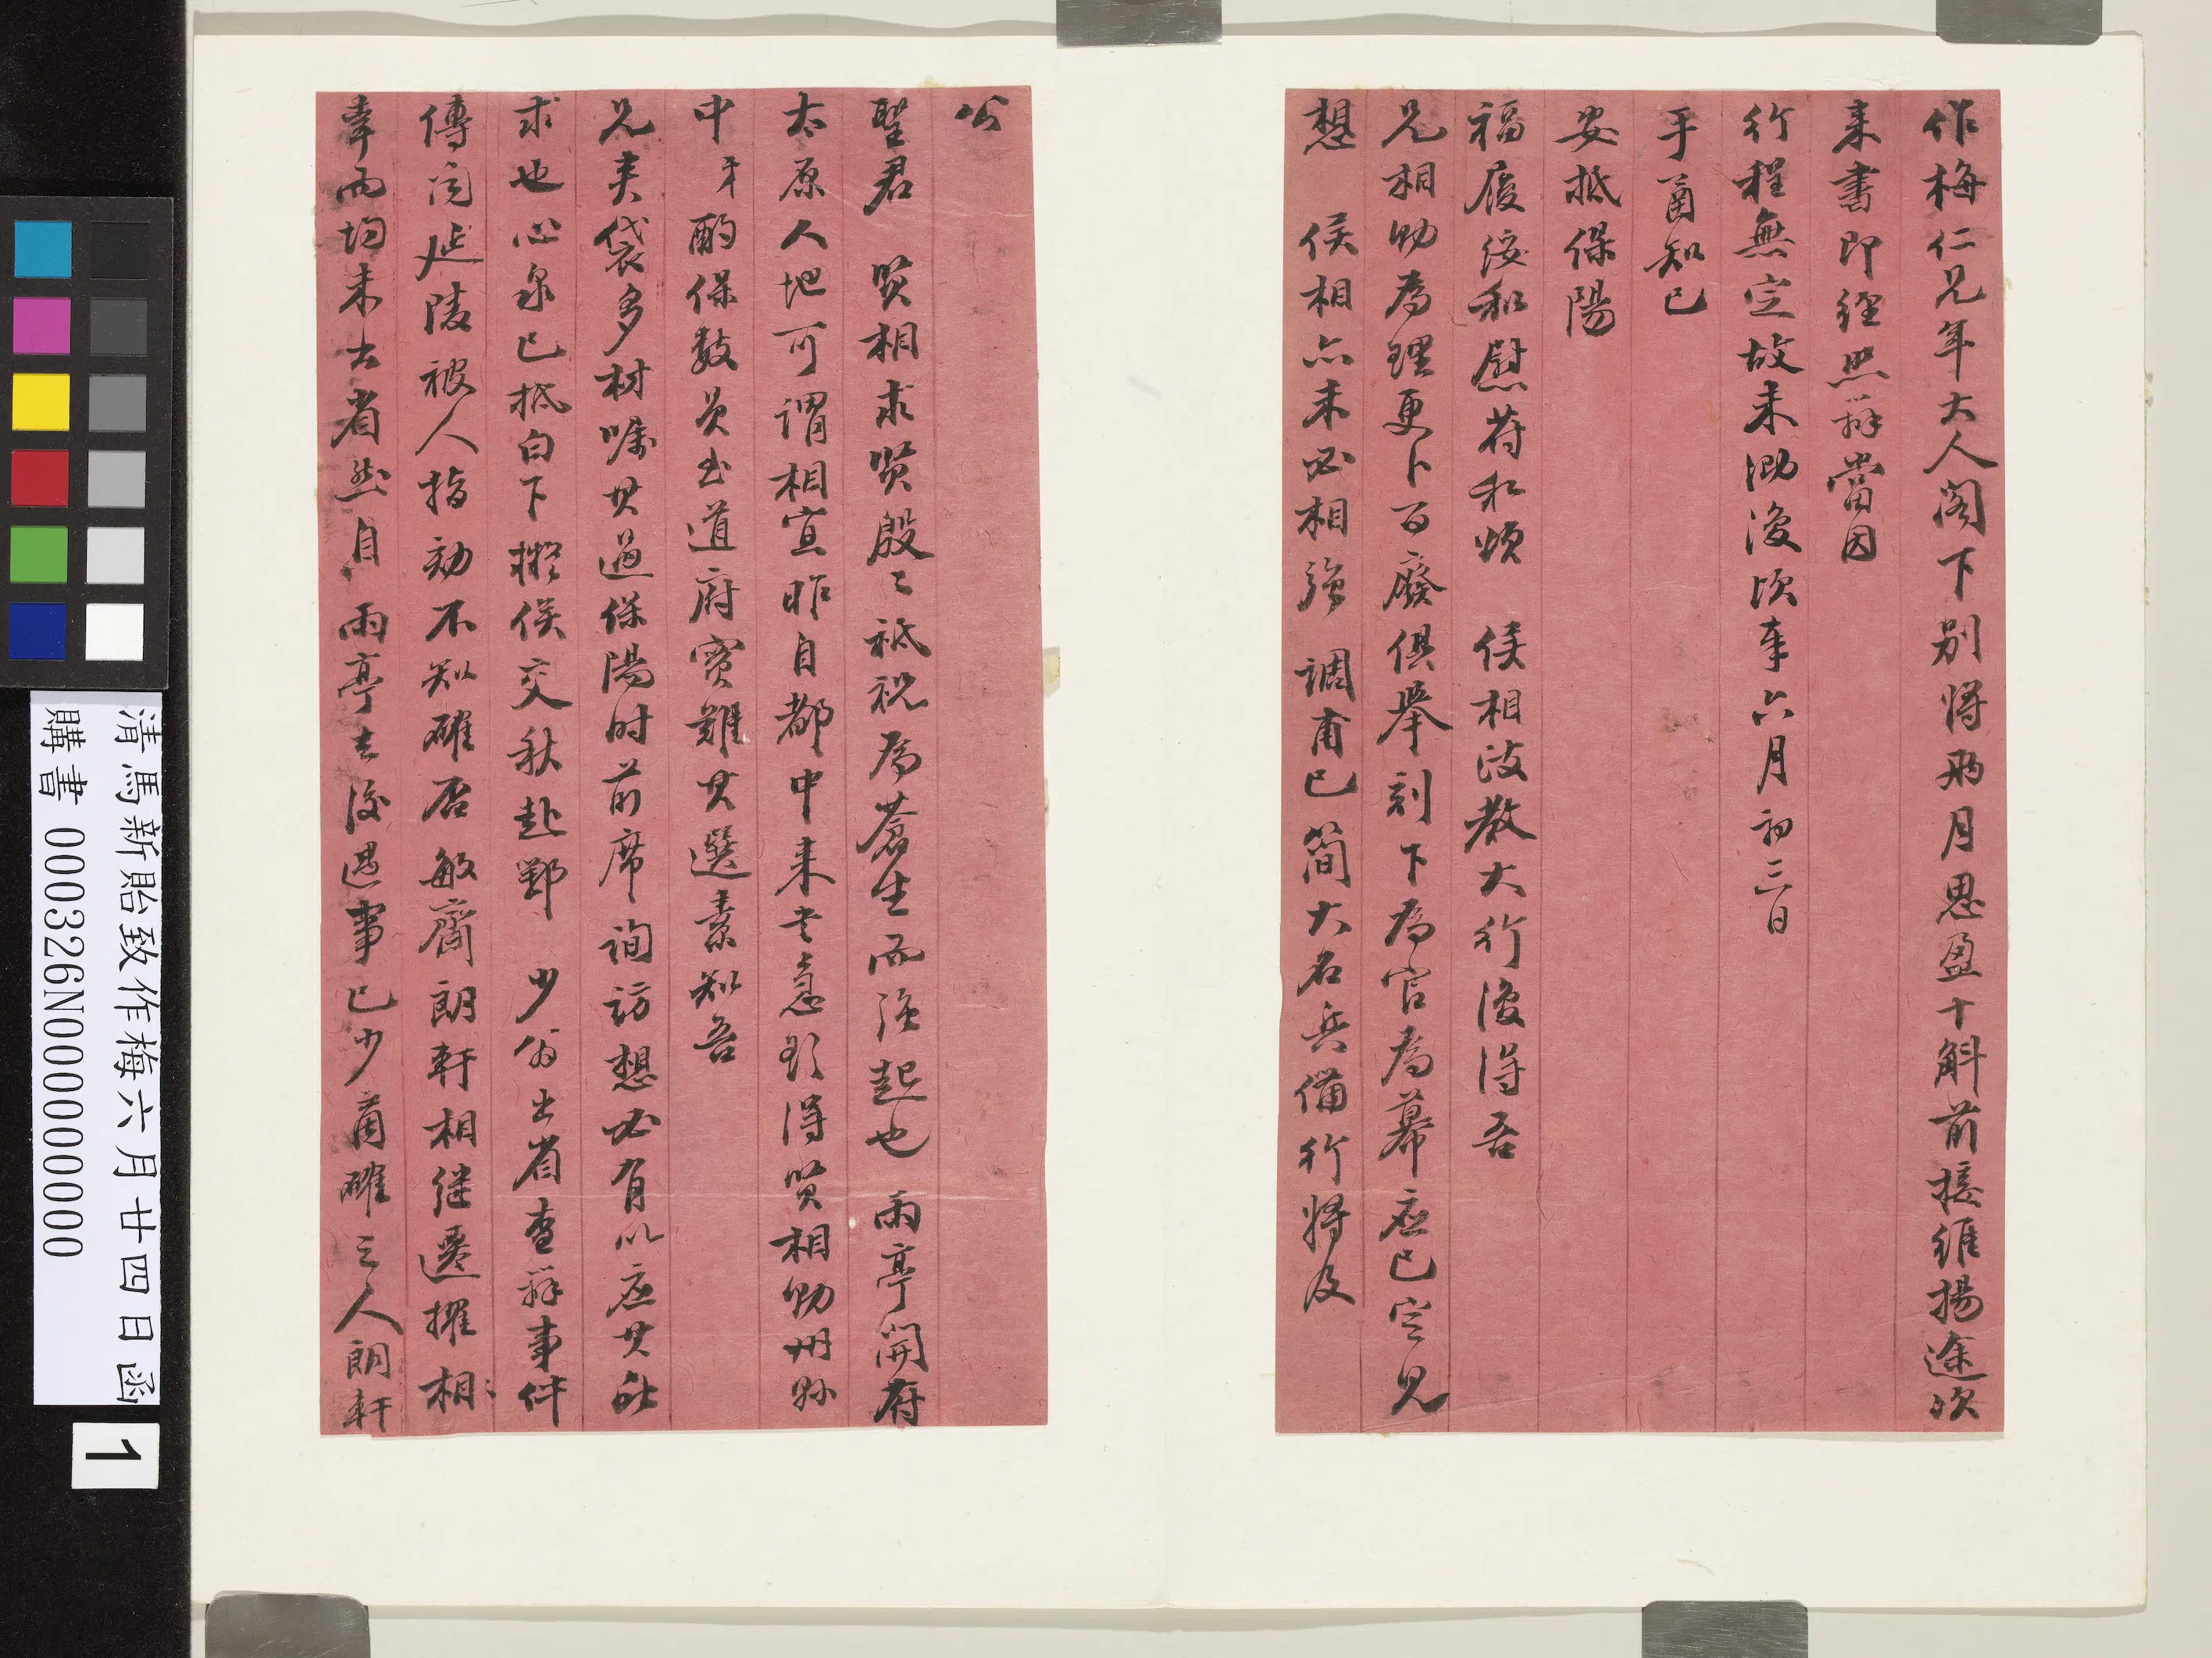 作梅仁兄年大人閣下別將兩月思盈十斛前接維揚途次
来書即經照辦當因
行程無定故未泐復頃奉六月初三日
手函知已
安抵保陽
福履綏和慰符私頌 侯相政教大行復得吾
兄相助為理更卜百廢俱舉刻下為官為幕應已定見
想 侯相亦未必相強 調甫已簡大名兵備行將及
公
聖君 賢相求賢殷〻祗祝為蒼生而強起也 雨亭開府
太原人地可謂相宜昨自都中来書急欲得賢相助州縣
中才酌保數員至道府實難其選素知吾
兄夾袋多材囑其過保陽時前席詢訪想必有以應其所
求也心泉已抵白下擬俟交秋赴鄂 少翁出省查辦事件
傳聞延陵被人指劾不知確否敏齋朗軒相继遷擢相〻
幸而均未出省然自 雨亭去後遇事已少商確之人朗軒
清馬新貽致作梅六月廿四日函
購書 000326N000000000
1